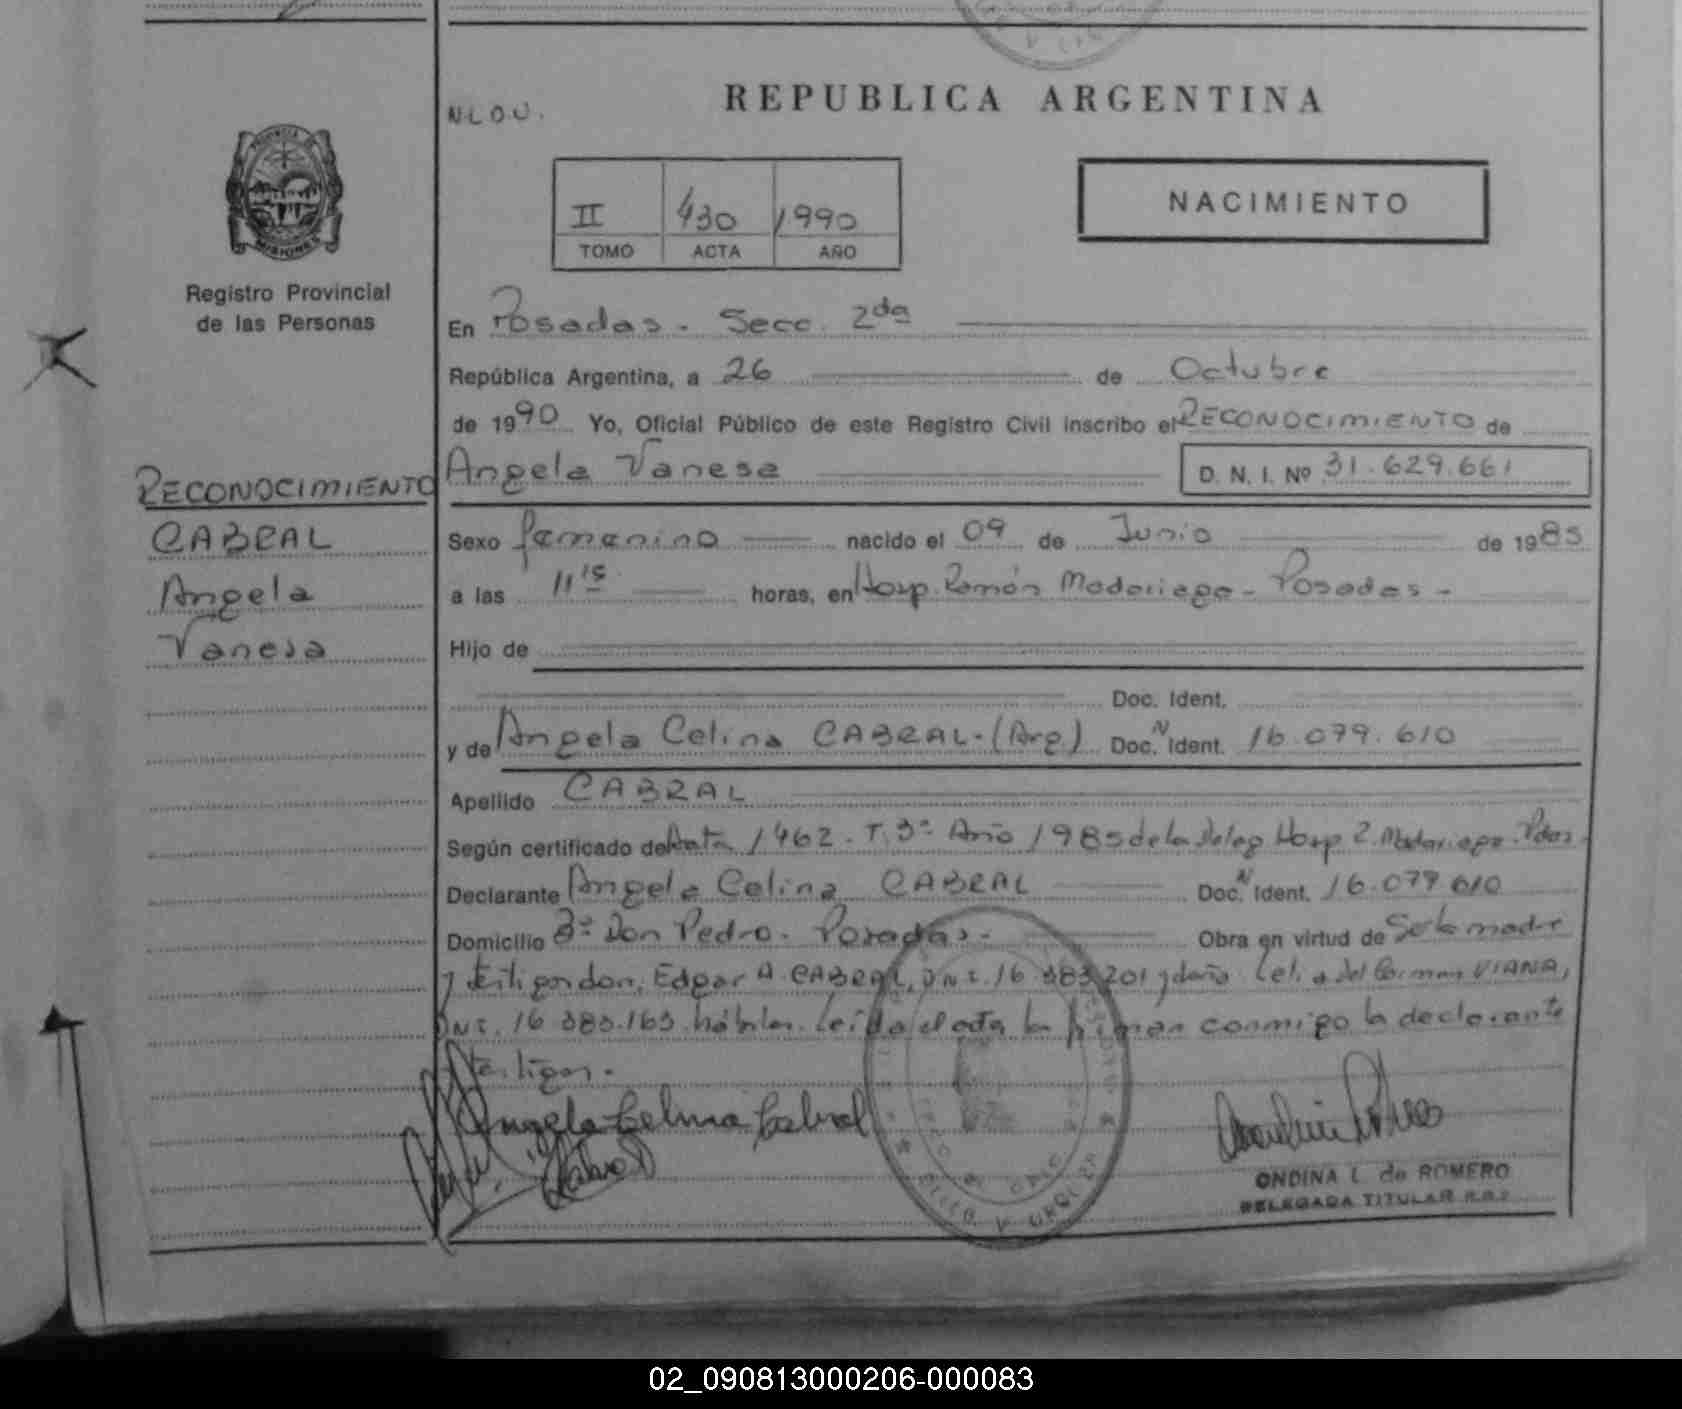 N.L.O.U.
REPUBLICA ARGENTINA
PROVINCIA DE
MISIONES
Registro Provincial
de las Personas
II 430 1990
TOMO ACTA AÑO
NACIMIENTO
En Posadas - Secc. 2da
República Argentina, a 26 de Octubre
de 1990 Yo, Oficial Público de este Registro Civil inscribo el RECONOCIMIENTO de
Angela Vanesa D. N. I. Nº 31.629.661
RECONOCIMIENTO
CABRAL
Angela
Vanesa
Sexo femenino nacido el 09 de Junio de 1985
a las 11 15 horas, en Hosp. Ramón Madariaga - Posadas -
Hijo de
Doc. Ident.
y de Angela Celina CABRAL - (Arg) Doc. N Ident. 16.079.610
Apellido CABRAL
Según certificado de Acta 1462 - T. 3º Año 1985 de la Deleg Hosp R. Madariaga - Pdas.
Declarante Angela Celina CABRAL Doc. N Ident. 16.079.610
Domicilio Bº Don Pedro - Posadas - Obra en virtud de Ser la madre
y testigos don, Edgar A. CABRAL, DNI. 16.383.201 y doña Celia del Carmen VIANA,
DNI. 16.383.163 hábiles. Leída el acta la firman conmigo la declarante
testigos.
Angela Celina Cabral
Cabral
ONDINA L. de ROMERO
DELEGADA TITULAR
02_090813000206-000083